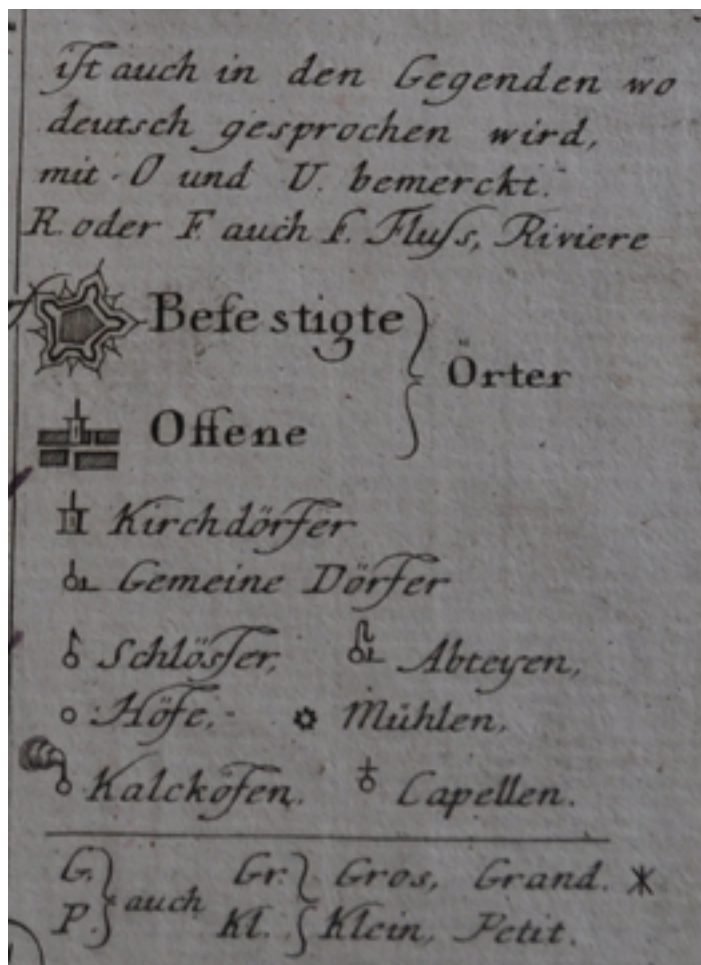 ist auch in den Gegenden wo
deutsch gesprochen wird,
mit O und U. bemerckt.
R. oder F. auch f. Fluss, Riviere
Befestigte
Örter
Offene
Kirchdörfer
Gemeine Dörfer
Schlösser, Abteyen,
Höfe, Mühlen,
Kalcköfen. Capellen.
G. auch Gr. Gros, Grand.
P. Kl. Klein, Petit.